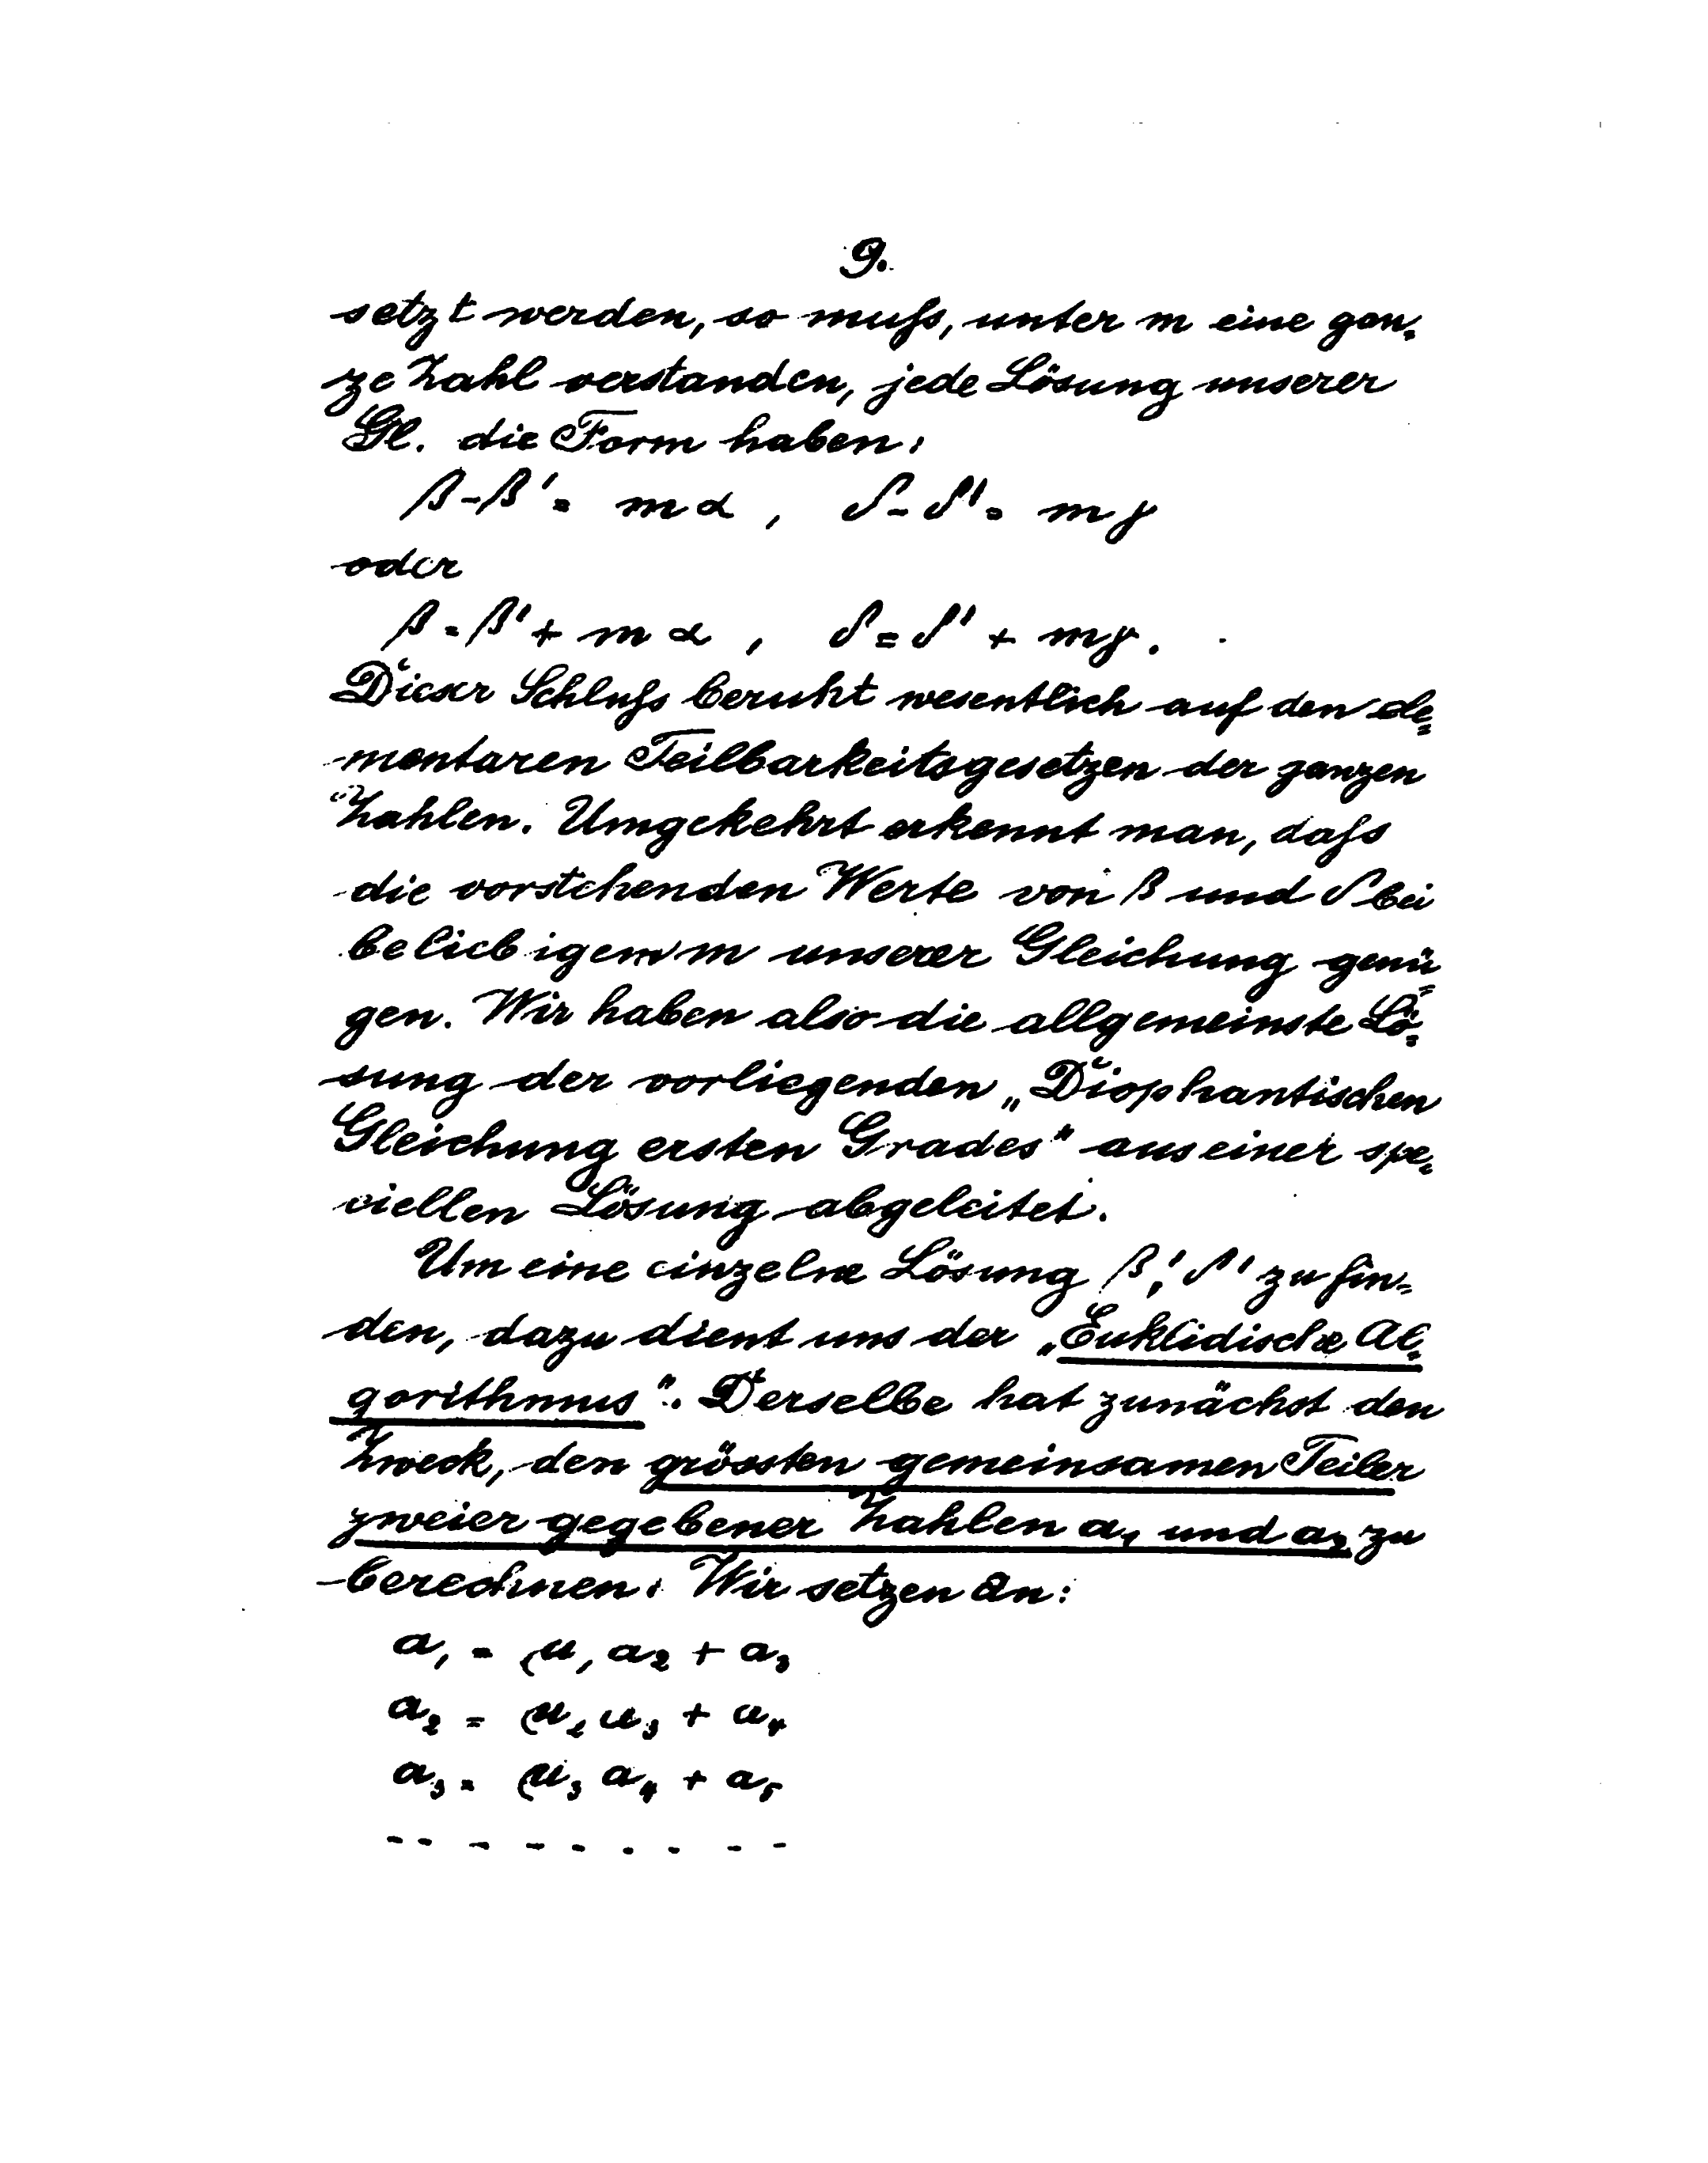 9.
setzt werden, so muſs, unter m eine gan=
ze Zahl verstanden, jede Lösung unserer
Gl. die Form haben:
β-β' = mα, δ-δ' = mγ
oder
β = β' + mα, δ = δ' + mγ.
Dieser Schluſs beruht wesentlich auf den ele=
mentaren Teilbarkeitsgesetzen der ganzen
Zahlen. Umgekehrt erkennt man, daſs
die vorstehenden Werte von β und δ bei
beliebigem m unserer Gleichung genü=
gen. Wir haben also die allgemeinste Lö=
sung der vorliegenden „Diophantischen
Gleichung ersten Grades" aus einer spe=
ciellen Lösung abgeleitet.
Um eine einzelne Lösung β', δ' zu fin=
den, dazu dient uns der „Euklidische Al=
gorithmus". Derselbe hat zunächst den
Zweck, den grössten gemeinsamen Teiler
zweier gegebener Zahlen a₁ und a₂ zu
berechnen. Wir setzen an:
a₁ = μ₁ a₂ + a₃
a₂ = μ₂ a₃ + a₄
a₃ = μ₃ a₄ + a₅
- - - - - - - - -